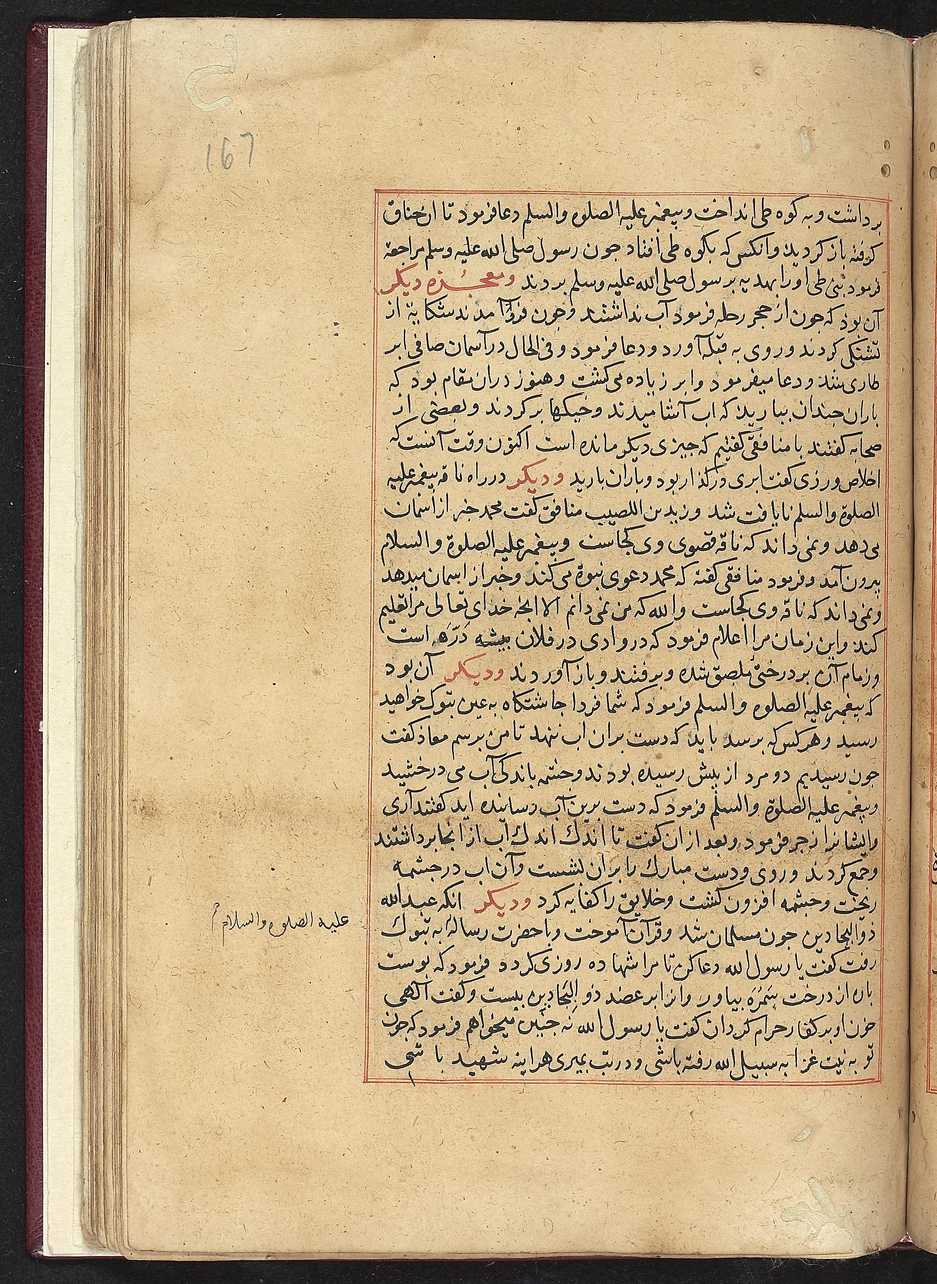 167
برداشت و به کوه طی انداخت و پیغمبر علیه الصلوة والسلم دعا فرمود تا ان خناق
کوفته باز کردید و انکس که بکوه طی افتاد جون رسول صلی الله علیه وسلم مراجعة
فرمود بنی طی او را بهدیه برسول صلی الله علیه وسلم بردند و معجزه دیکر
آن بود که جون از حجر رحله فرمود آب نداشتند و جون فرود آمدند شکایة از
تشنکی کردند و روی به قبله آورد و دعا فرمود و فی الحال در آسمان صافی ابر
طاری شد و دعا میفرمود و ابر زیاده می کشت و هنوز در ان مقام بود که
باران جندان ببارید که اب آشامیدند و خیکها بر کردند و بعضی از
صحابه کفتند با منافقی کفتیم که جیزی دیکر مانده است اکنون وقت آنست که
اخلاص ورزی کفت ابری در کذار بود و باران بارید و دیکر در راه ناقه پیغمبر علیه
الصلوة والسلم نایافت شد و زید بن اللصیب منافق کفت محمد خبر از اسمان
می دهد و نمی داند که ناقه قصوی وی کجاست و پیغمبر علیه الصلوة والسلام
بیرون آمد و فرمود منافقی کفته که محمد دعوی نبوة می کند و خبر از اسمان میدهد
و نمی داند که ناقه وی کجاست والله که من نمی دانم الا انجه خدای تعالی مرا تعلیم
کند و این زمان مرا اعلام فرمود که در وادی در فلان بیشه دره است
و زمام آن بر درختی ملصق شده و برفتند و باز آوردند و دیکر آن بود
که پیغمبر علیه الصلوه والسلم فرمود که شما فردا جاشتکاه به عین تبوک خواهید
رسید و هر کس که برسد باید که دست بران اب ننهد تا من برسم معاذ کفت
جون رسیدیم دو مرد از بیش رسیده بودند و جشمه باندکی آب می درخشید
و پیغمبر علیه الصلوة والسلم فرمود که دست برین آب رسانیده اید کفتند آری
و ایشانرا زجر فرمود و بعد از ان کفت تا اندک اندک آب از انجا برداشتند
و جمع کردند و روی و دست مبارک را بران بشست و آن اب در جشمه
ریخت و جشمه افزون کشت و خلایق را کفایه کرد و دیکر انکه عبد الله
ذو البجادین جون مسلمان شد و قرآن آموخت و با حضرت رسالة به تبوک
علیه الصلوه والسلام
رفت کفت یا رسول الله دعا کن تا مرا شهاده روزی کردد فرمود که بوست
باره از درخت سمره بیاور و انرا بر عضد ذو البجادین ببست و کفت آلهی
خون او بر کفار حرام کردان کفت یا رسول الله نه جنین میخواهم فرمود که جون
تو به نیت غزا به سبیل الله رفته باشی و در تب بمیری هراینه شهید باشی